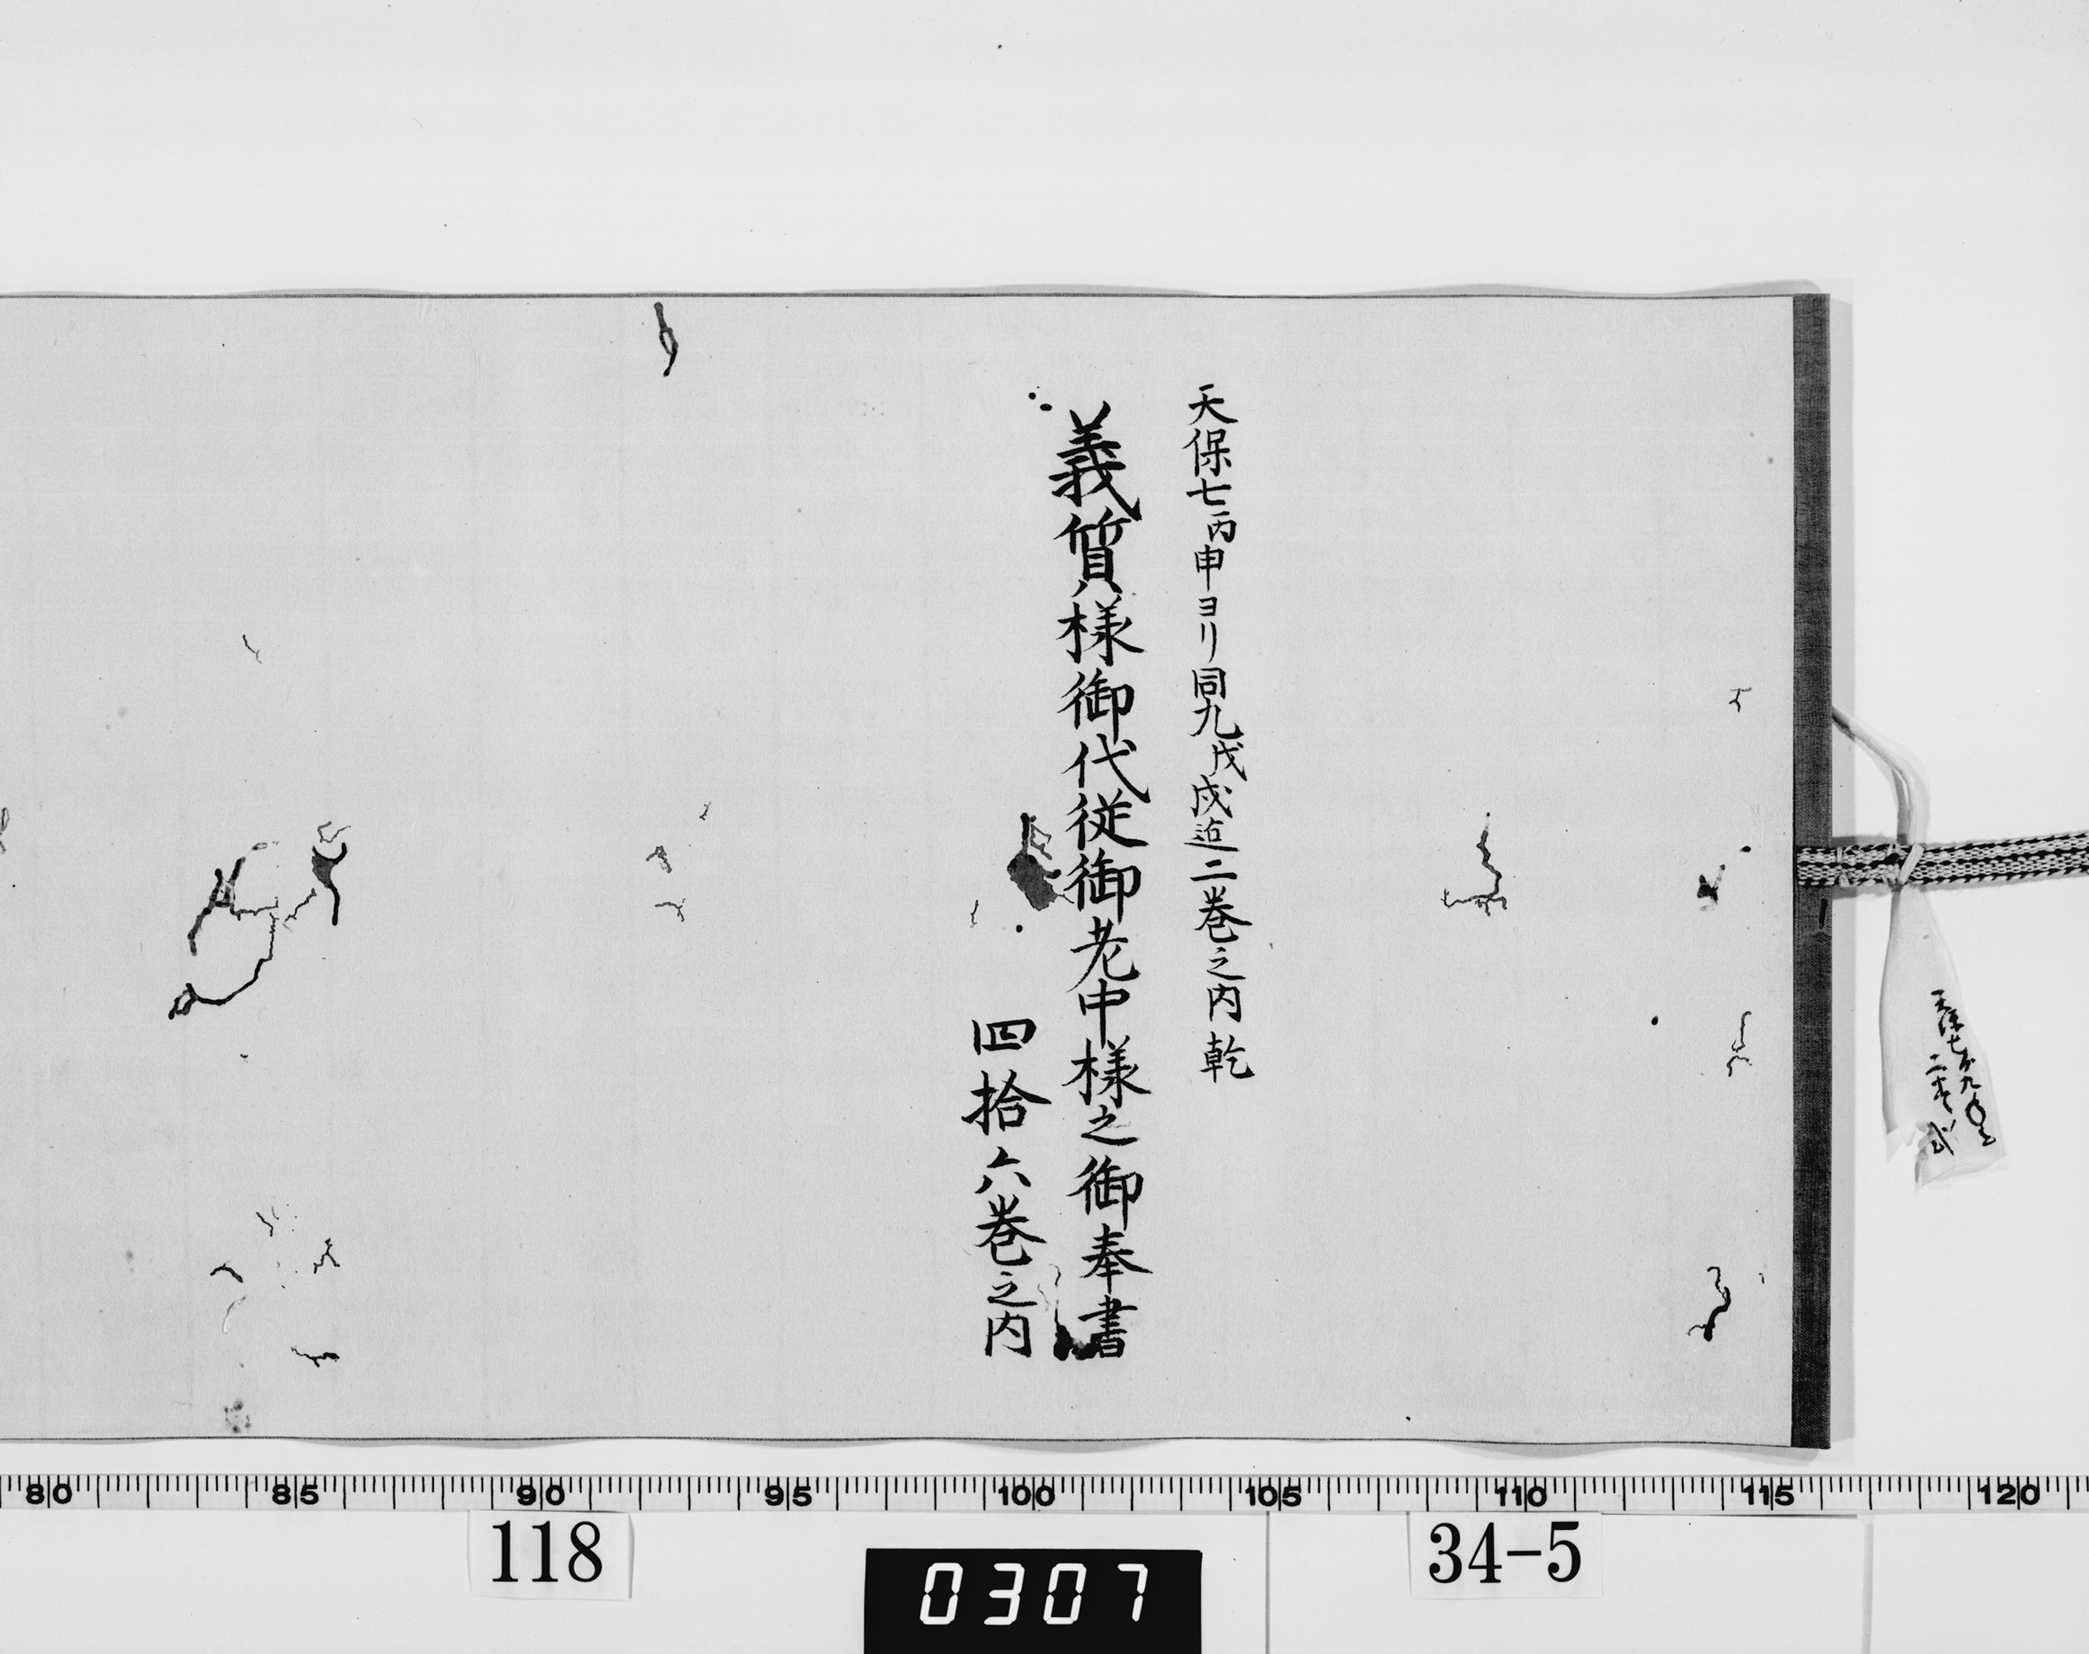 天保七丙申ヨリ同九戊戌迠二巻之内 乾
義質様御代従御老中様之御奉書
四拾六巻之内
天保七
二
80 85 90 95 100 105 110 115 120
118
0307
34-5